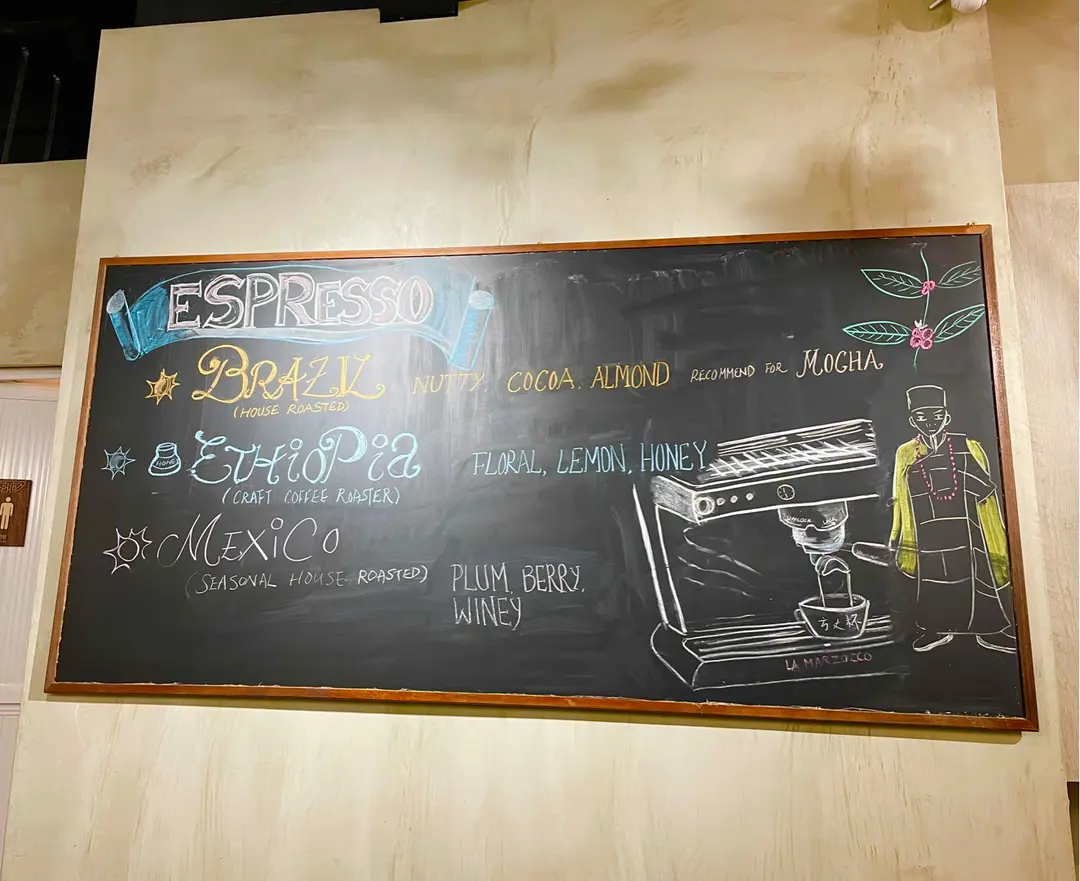 ESPRESSO
BRAZIL NUTTY, COCOA. ALMOND RECOMMEND FOR MOCHA
(HOUSE ROASTED)
HONEY ETHIOPIA FLORAL, LEMON, HONEY
(CRAFT COFFEE ROASTER)
MEXICO
(SEASONAL HOUSE ROASTED) PLUM, BERRY,
WINEY
方丈杯
LA MARZOCCO